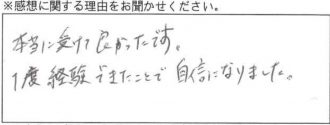 ※感想に関する理由をお聞かせください。
本当に受けて良かったです。
1度経験できたことで自信になりました。